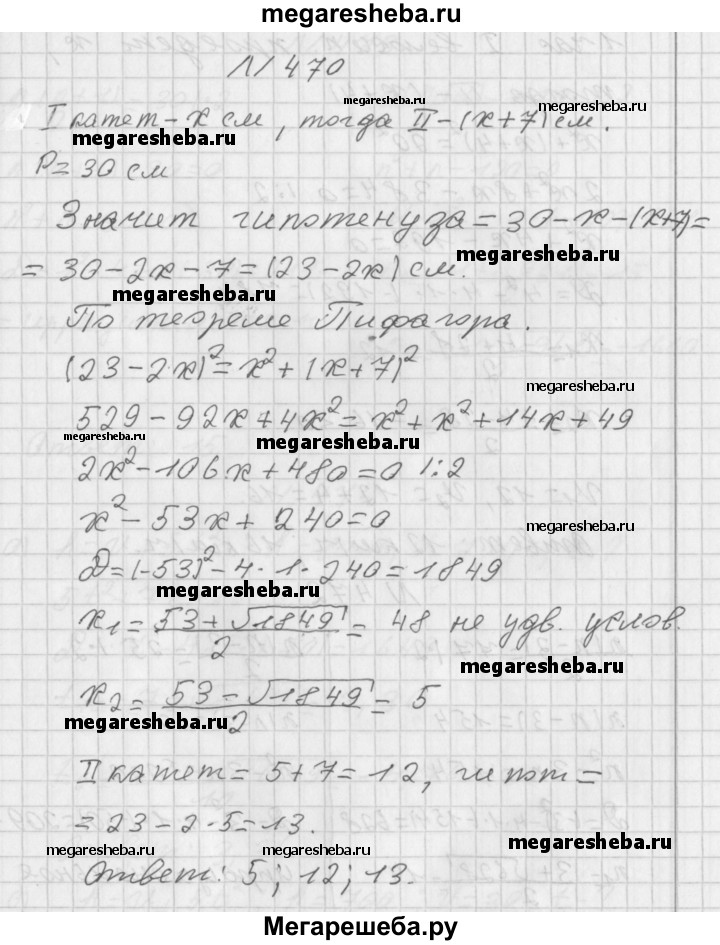 megaresheba.ru
№ 470
I катет - x см, тогда II - (x+7) см.
megaresheba.ru
megaresheba.ru
P = 30 см
Значит гипотенуза = 30 - x - (x+7) =
megaresheba.ru
= 30 - 2x - 7 = (23 - 2x) см.
megaresheba.ru
По теореме Пифагора.
(23 - 2x)² = x² + (x + 7)²
megaresheba.ru
529 - 92x + 4x² = x² + x² + 14x + 49
megaresheba.ru
megaresheba.ru
2x² - 106x + 480 = 0 |:2
x² - 53x + 240 = 0
megaresheba.ru
D = (-53)² - 4 · 1 · 240 = 1849
megaresheba.ru
x₁ = (53 + √1849)/2 = 48 не удв. услов.
megaresheba.ru
x₂ = (53 - √1849)/2 = 5
megaresheba.ru
II катет = 5 + 7 = 12, гипот =
= 23 - 2 · 5 = 13.
megaresheba.ru
megaresheba.ru
megaresheba.ru
Ответ: 5; 12; 13.
Мегарешеба.ру